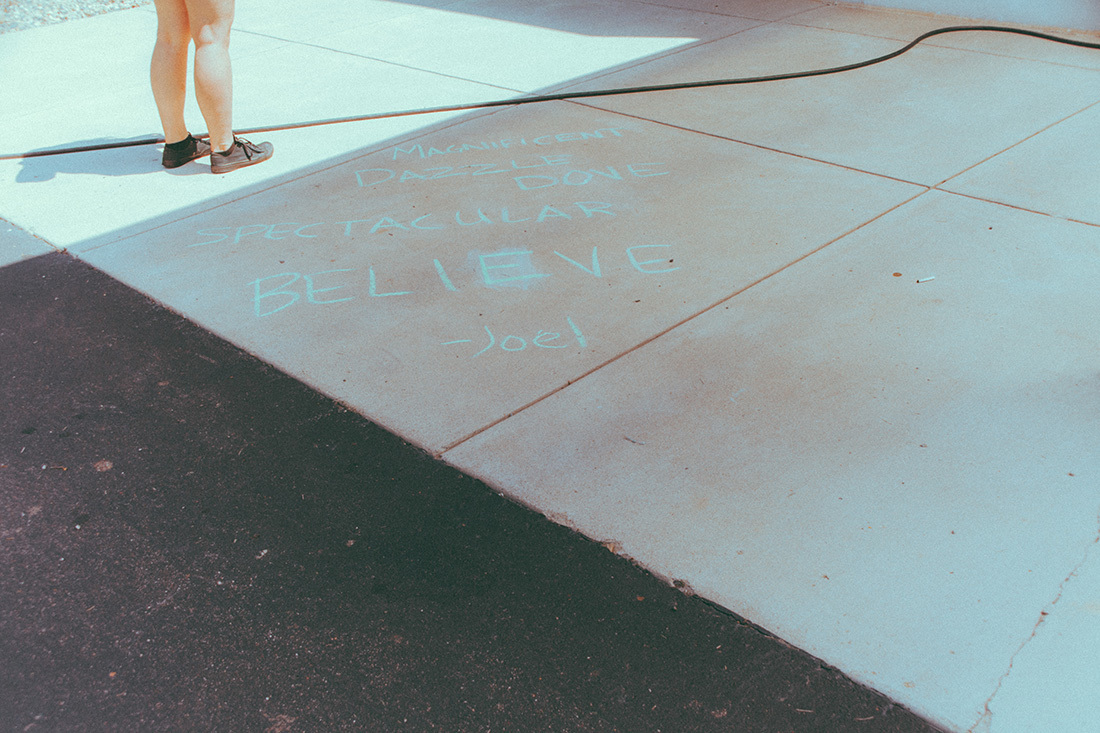 MAGNIFICENT
DAZZLE
DOVE
SPECTACULAR
BELIEVE
-Joel